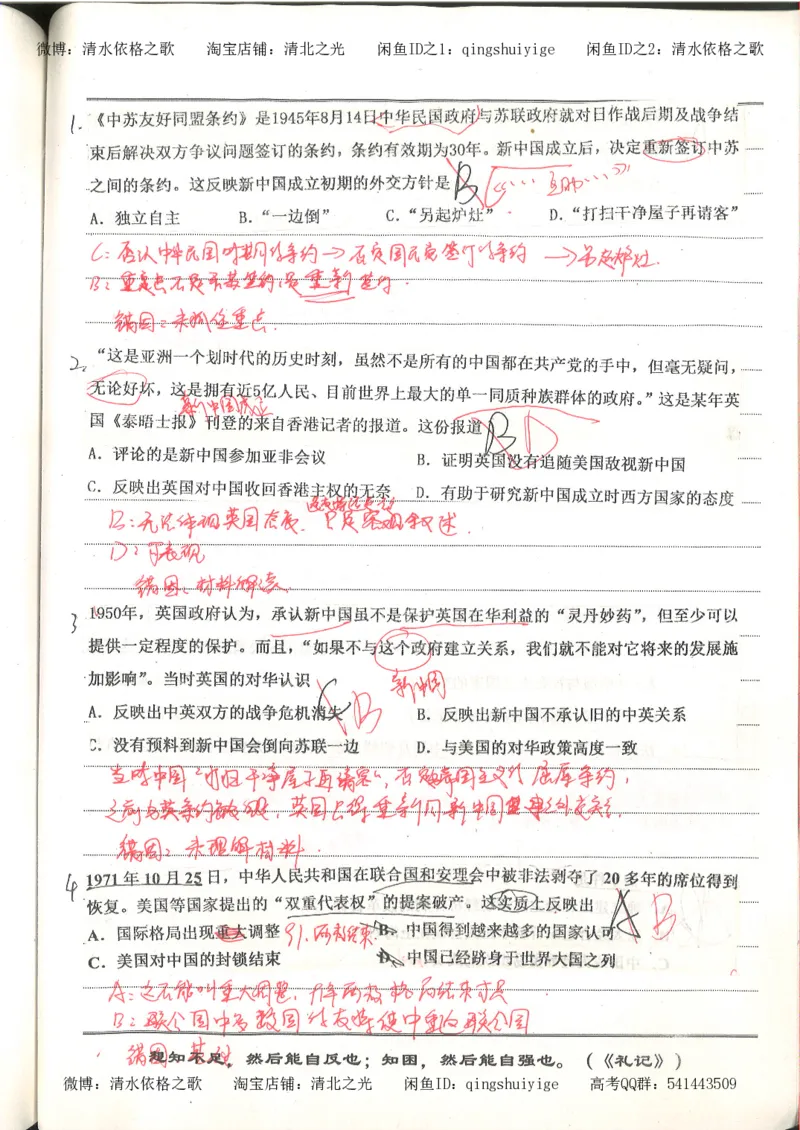 微博：清水依格之歌 淘宝店铺：清北之光 闲鱼ID之1：qingshuiyige 闲鱼ID之2：清水依格之歌
1. 《中苏友好同盟条约》是1945年8月14日中华民国政府与苏联政府就对日作战后期及战争结
束后解决双方争议问题签订的条约，条约有效期为30年。新中国成立后，决定重新签订中苏
之间的条约。这反映新中国成立初期的外交方针是 B
A．独立自主 B．“一边倒” C．“另起炉灶” D．“打扫干净屋子再请客”
C：否认中华民国时期的条约→否定国民党签订的条约 →另起炉灶.
错因：未抓住重点.
2. “这是亚洲一个划时代的历史时刻，虽然不是所有的中国都在共产党的手中，但毫无疑问，
无论好坏，这是拥有近5亿人民、目前世界上最大的单一同质种族群体的政府。”这是某年英
新中国成立
国《泰晤士报》刊登的来自香港记者的报道。这份报道 B D
A．评论的是新中国参加亚非会议 B．证明英国没有追随美国敌视新中国
C．反映出英国对中国收回香港主权的无奈 D．有助于研究新中国成立时西方国家的态度
B：无法体现英国态度.
D：可表现
错因：材料解读.
3 1950年，英国政府认为，承认新中国虽不是保护英国在华利益的“灵丹妙药”，但至少可以
提供一定程度的保护。而且，“如果不与这个政府建立关系，我们就不能对它将来的发展施
加影响”。当时英国的对华认识 C B 新中国
A．反映出中英双方的战争危机消失 B．反映出新中国不承认旧的中英关系
C．没有预料到新中国会倒向苏联一边 D．与美国的对华政策高度一致
当时中国“打扫干净屋子再请客”，否认帝国主义的屈辱条约，
错因：未理解材料.
4 1971年10月25日，中华人民共和国在联合国和安理会中被非法剥夺了20多年的席位得到
恢复。美国等国家提出的“双重代表权”的提案破产。这实质上反映出 A B
A．国际格局出现重大调整 91.两极结束. B．中国得到越来越多的国家认可
C．美国对中国的封锁结束 D．中国已经跻身于世界大国之列
A：这不能叫重大调整，91年两极格局结束才是
B：联合国中多数国的支持使中重返联合国
错因：
知不足，然后能自反也；知困，然后能自强也。（《礼记》）
微博：清水依格之歌 淘宝店铺：清北之光 闲鱼ID：qingshuiyige 高考QQ群：541443509